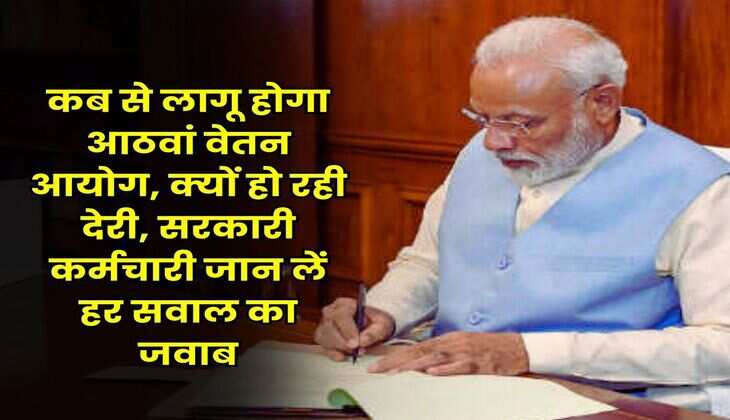 कब से लागू होगा
आठवां वेतन
आयोग, क्यों हो रही
देरी, सरकारी
कर्मचारी जान लें
हर सवाल का
जवाब